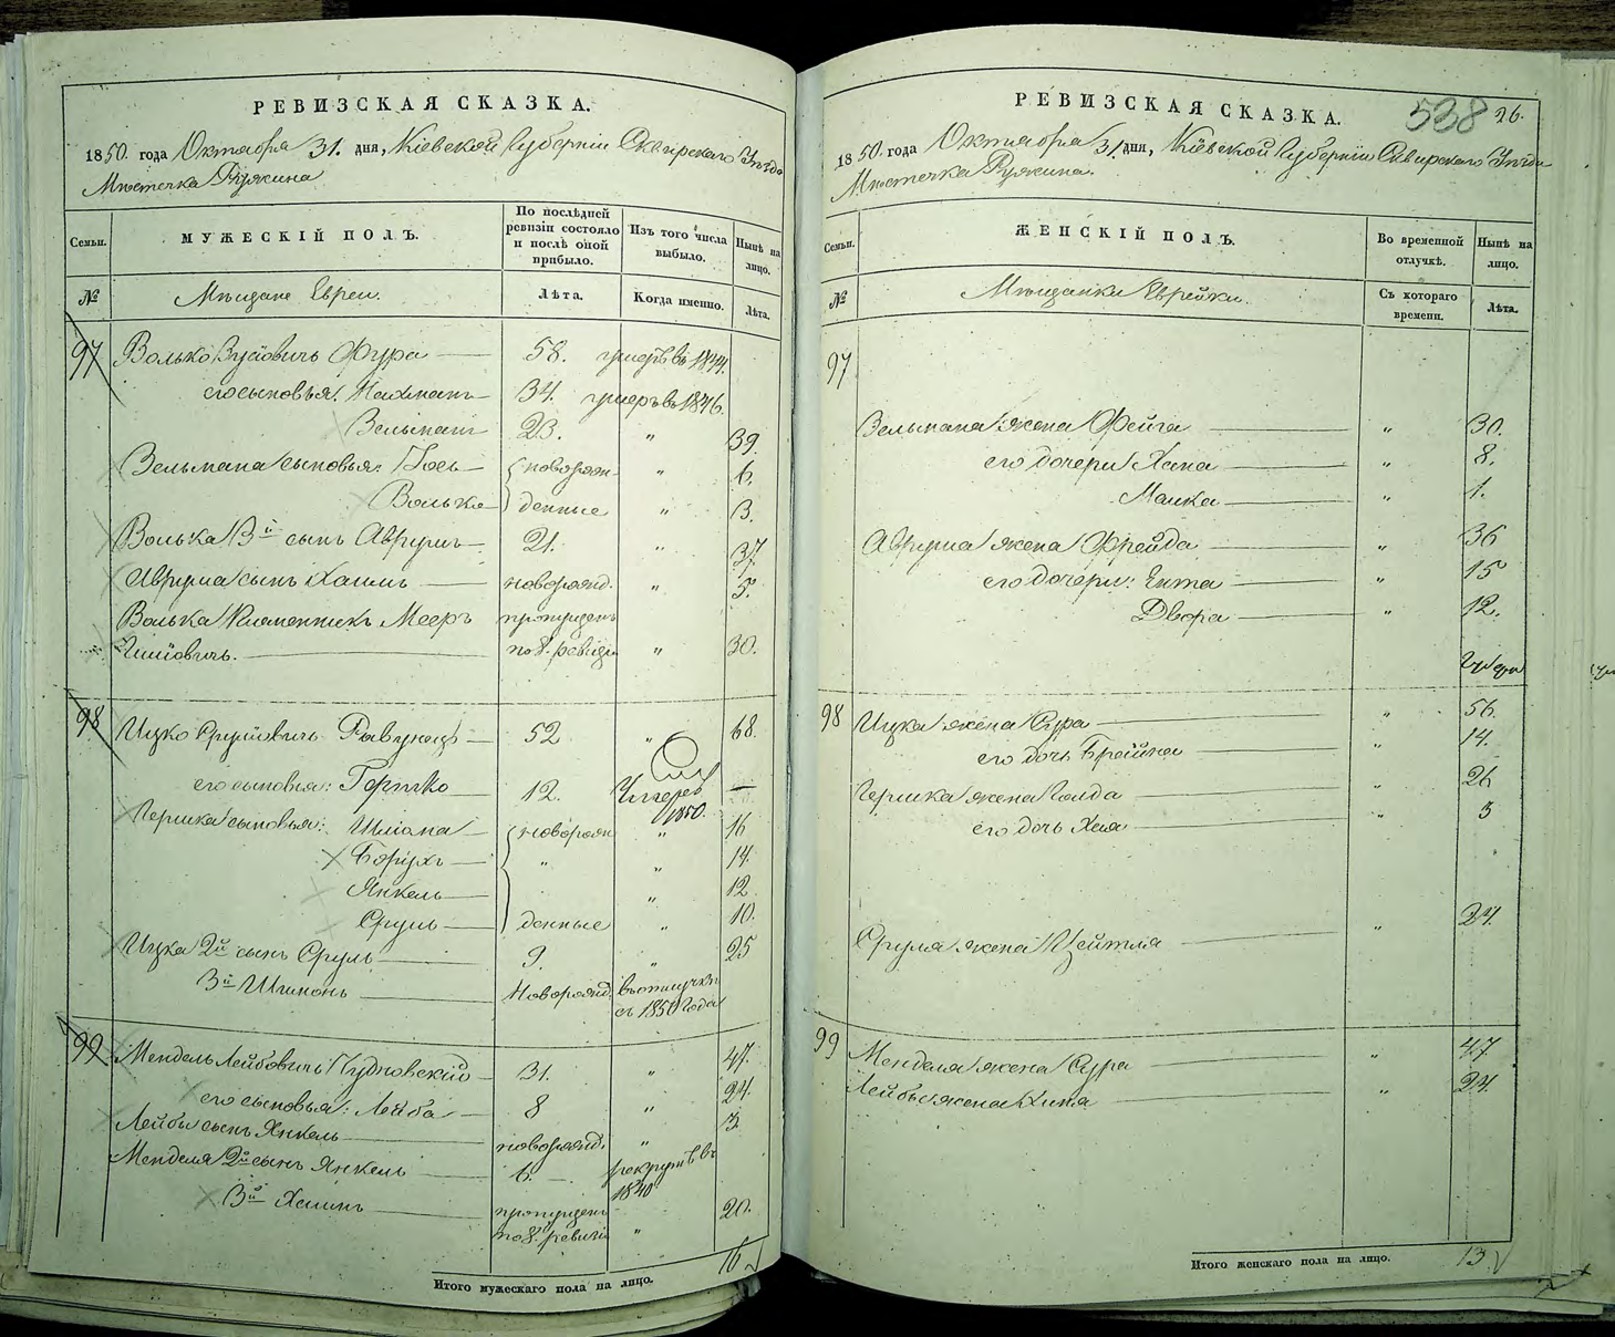 РЕВИЗСКАЯ СКАЗКА.
1850. года Октября 31. дня, Кіевской Губерніи Сквирскаго Уѣзда
Мѣстечка Ружина
Семьи. МУЖЕСКІЙ ПОЛЪ. По послѣдней ревизіи состояло и послѣ оной прибыло. Изъ того числа выбыло. Нынѣ на лицо.
№ Мѣщане Евреи. Лѣта. Когда именно. Лѣта.
97 Волько Фура — 58. умеръ въ 1844.
его сыновья: Нахманъ — 34. умеръ въ 1846.
Зельманъ 23. " 39.
Зельмана сыновья: Іось — новорож- " 6.
Волько — денные " 3.
Волька 3й сынъ Аврумъ — 21. " 37.
Аврума сынъ Хаимъ — новорожд. " 5.
Волька Племянникъ Мееръ пропущенъ
по 8. ревизіи " 30.
98 Ицко Срулiовичъ — 52 " 68.
его сыновья: Гершко — 12. 1850. —
Гершка сыновья: Шліома — новорож " 16
Борухъ — " " 14.
Янкель — " 12
Сруль — денные " 10.
Ицка 2й сынъ Сруль — 9. " 25
3й Шимонъ — Новорожд. въ отлучкѣ
съ 1850 года
99 Мендель Лейбовичъ Чудновскій — 31. " 47.
его сыновья: Лейба — 8 " 24.
Лейбы сынъ Янкель — новорожд. " 3.
Менделя 2й сынъ Янкель — 6. — рекрутъ въ
1840
3й Хаимъ — пропущенъ 20.
по 8. ревизіи "
Итого мужескаго пола на лицо. 16
РЕВИЗСКАЯ СКАЗКА.
538 26.
1850. года Октября 31. дня, Кіевской Губерніи Сквирскаго Уѣзда
Мѣстечка Ружина.
Семьи. ЖЕНСКІЙ ПОЛЪ. Во временной отлучкѣ. Нынѣ на лицо.
№ Мѣщанки Еврейки. Съ котораго времени. Лѣта.
97
Зельмана жена Фейга — " 30.
его дочери Хана — " 8.
Малка — " 1.
Аврума жена Фрейда — " 36
его дочери: Ента — " 15
Двора — " 12.
98 Ицка жена Сура — " 56.
его дочь Брайна — " 14.
Гершка жена Голда — " 26
его дочь Хая — " 3
Сруля жена Цейтля — " 24.
99 Менделя жена Сура — " 47
Лейбы жена — " 24.
Итого женскаго пола на лицо. 13